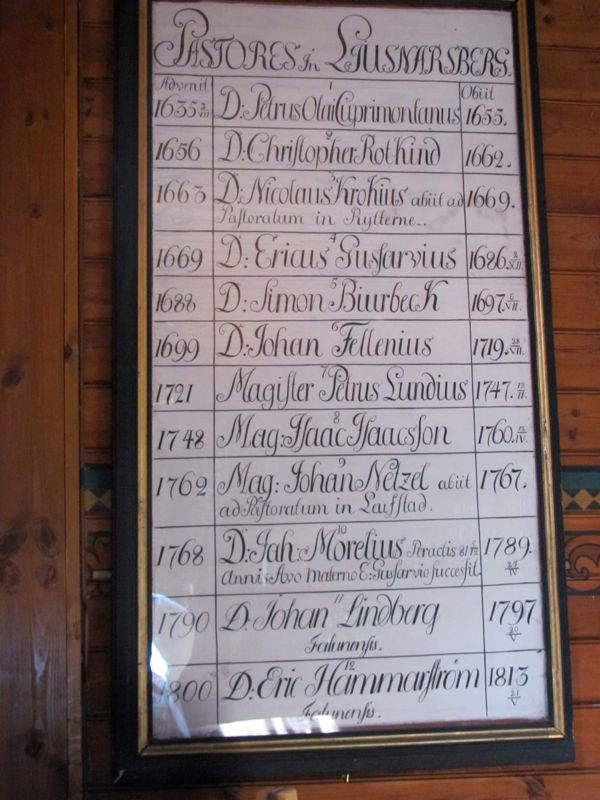 PASTORES in LJUSNARSBERG.
Advenit Obiit
1
1635 D: Petrus Olai Cuprimontanus 1655.
2
1656 D: Christopher Rothind 1662.
3
1663 D: Nicolaus Krokius abiit ad 1669.
Pastoratum in Rytterne..
4
1669 D: Ericus Gussarvius 1686. 2/XII.
5
1688 D: Simon Biurbeck 1697. 6/VII.
6
1699 D: Johan Fellenius 1719. 28/VII.
7
1721 Magister Petrus Lundius 1747. 12/II.
8
1748 Mag: Isaac Isaacsson 1760. 12/IV.
9
1762 Mag: Johan Netzel abiit 1767.
ad Pastoratum in Leufstad.
10
1768 D: Jah: Morelius Peractis 81 1789.
Annis Avo Materno E: Gussarvio successit. IV
11
1790 D. Johan Lindberg 1797
Falunensis. 20/V
12
1800 D: Eric Hammarström 1813
Falunensis. 21/V